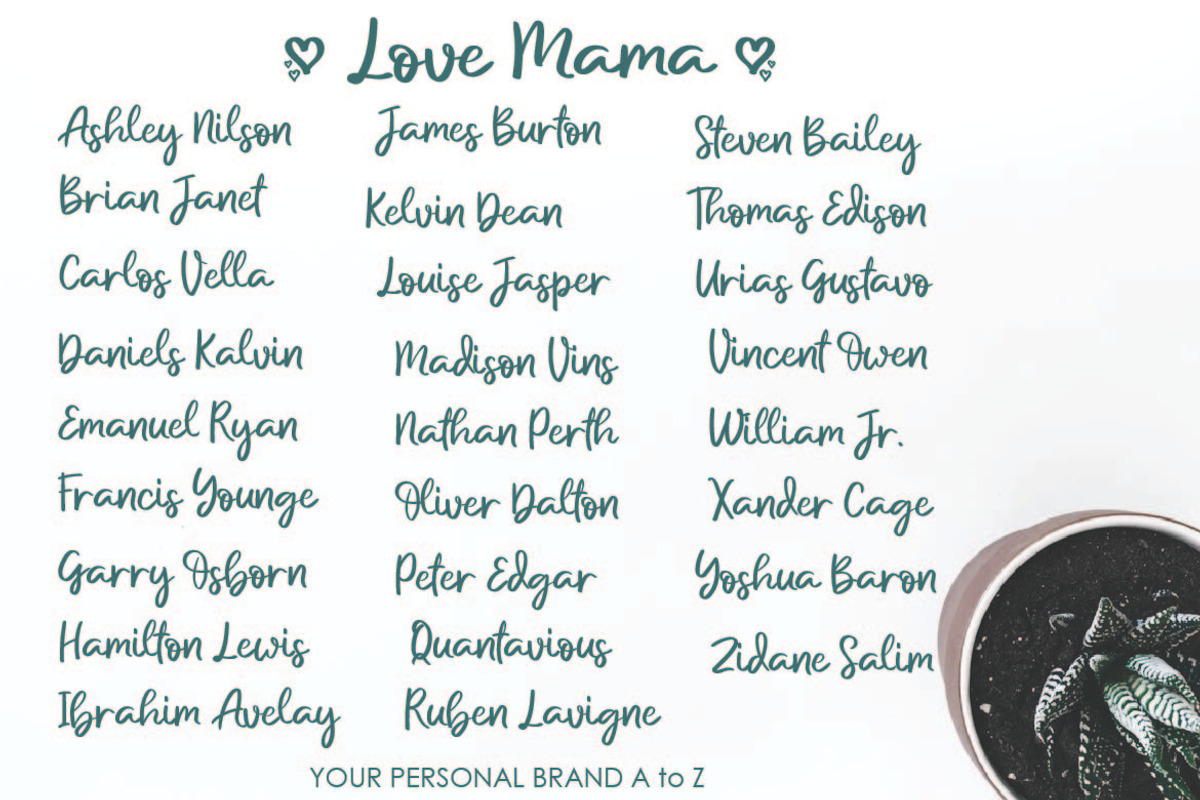 Love Mama
Ashley Nilson
Brian Janet
Carlos Vella
Daniels Kalvin
Emanuel Ryan
Francis Younge
Garry Osborn
Hamilton Lewis
Ibrahim Avelay
James Burton
Kelvin Dean
Louise Jasper
Madison Vins
Nathan Perth
Oliver Dalton
Peter Edgar
Quantavious
Ruben Lavigne
Steven Bailey
Thomas Edison
Urias Gustavo
Vincent Owen
William Jr.
Xander Cage
Yoshua Baron
Zidane Salim
YOUR PERSONAL BRAND A to Z